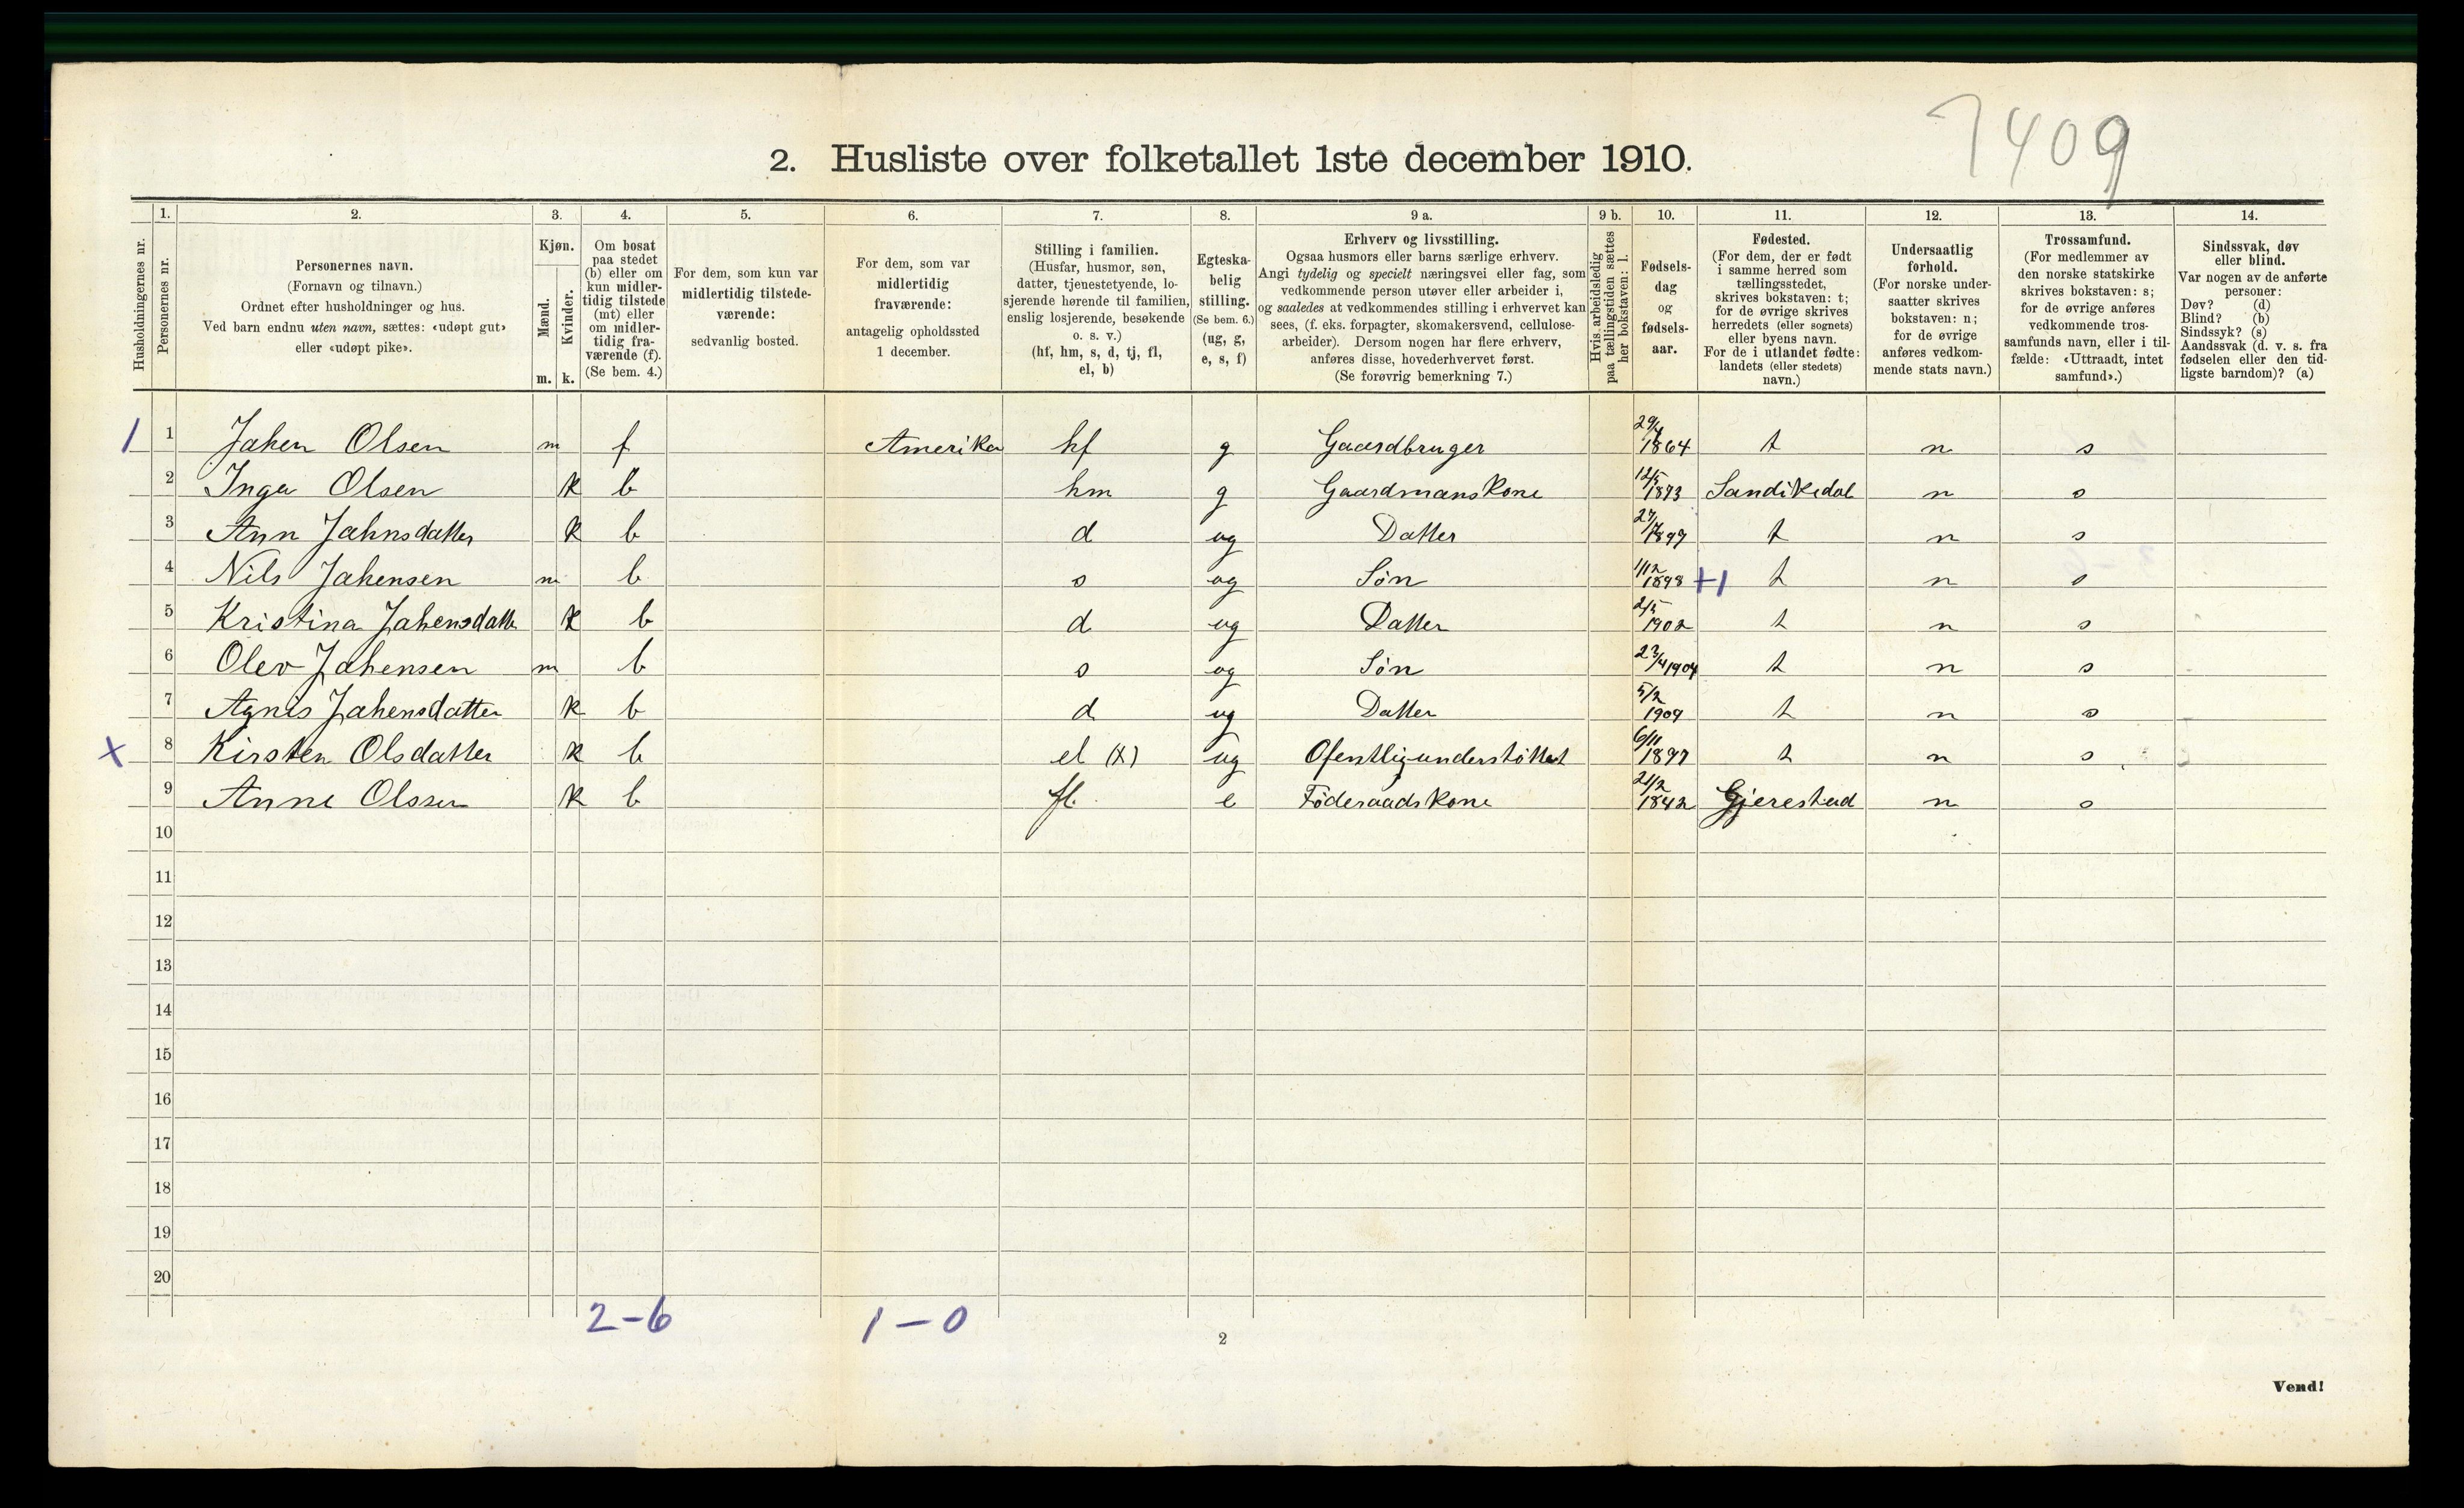 7409
2. Husliste over folketallet 1ste december 1910.
1. 2. 3. 4. 5. 6. 7. 8. 9 a. 9 b. 10. 11. 12. 13. 14.
Husholdningernes nr.
Personernes nr.
Personernes navn.
(Fornavn og tilnavn.)
Ordnet efter husholdninger og hus.
Ved barn endnu uten navn, sættes: «udøpt gut»
eller «udøpt pike».
Kjøn.
Mænd.
Kvinder.
m. k.
Om bosat
paa stedet
(b) eller om
kun midler-
tidig tilstede
(mt) eller
om midler-
tidig fra-
værende (f).
(Se bem. 4.)
For dem, som kun var
midlertidig tilstede-
værende:
sedvanlig bosted.
For dem, som var
midlertidig
fraværende:
antagelig opholdssted
1 december.
Stilling i familien.
(Husfar, husmor, søn,
datter, tjenestetyende, lo-
sjerende hørende til familien,
enslig losjerende, besøkende
o. s. v.)
(hf, hm, s, d, tj, fl,
el, b)
Egteska-
belig
stilling.
(Se bem. 6.)
(ug, g,
e, s, f)
Erhverv og livsstilling.
Ogsaa husmors eller barns særlige erhverv.
Angi tydelig og specielt næringsvei eller fag, som
vedkommende person utøver eller arbeider i,
og saaledes at vedkommendes stilling i erhvervet kan
sees, (f. eks. forpagter, skomakersvend, cellulose-
arbeider). Dersom nogen har flere erhverv,
anføres disse, hovederhvervet først.
(Se forøvrig bemerkning 7.)
Hvis arbeidsledig
paa tællingstiden sættes
her bokstaven: l.
Fødsels-
dag
og
fødsels-
aar.
Fødested.
(For dem, der er født
i samme herred som
tællingsstedet,
skrives bokstaven: t;
for de øvrige skrives
herredets (eller sognets)
eller byens navn.
For de i utlandet fødte:
landets (eller stedets)
navn.)
Undersaatlig
forhold.
(For norske under-
saatter skrives
bokstaven: n;
for de øvrige
anføres vedkom-
mende stats navn.)
Trossamfund.
(For medlemmer av
den norske statskirke
skrives bokstaven: s;
for de øvrige anføres
vedkommende tros-
samfunds navn, eller i til-
fælde: «Uttraadt, intet
samfund».)
Sindssvak, døv
eller blind.
Var nogen av de anførte
personer:
Døv? (d)
Blind? (b)
Sindssyk? (s)
Aandssvak (d. v. s. fra
fødselen eller den tid-
ligste barndom)? (a)
1 1 Jahen Olsen m f Amerika hf g Gaardbruger 1864 t n s
2 Inga Olsen k b hm g Gaardmanskone 12/5 1873 Sandikedal n s
3 Ann Jahnsdatter k b d ug Datter t n s
4 Nils Jahensen m b s ug Søn 1/12 1898 +1 t n s
5 Kristina Jahensdatte k b d ug Datter 2/5 1902 t n s
6 Olev Jahensen m b s ug Søn 23/4 1904 t n s
7 Agnis Jahensdatter k b d ug Datter 5/2 1909 t n s
X 8 Kirsten Olsdatter k b el (X) ug Ofentligunderstøttet 6/11 t n s
9 Anne Olssen k b fl e Føderaadskone 21/2 1842 Gjerestad n s
10
11
12
13
14
15
16
17
18
19
20
2-6 1-0
2
Vend!